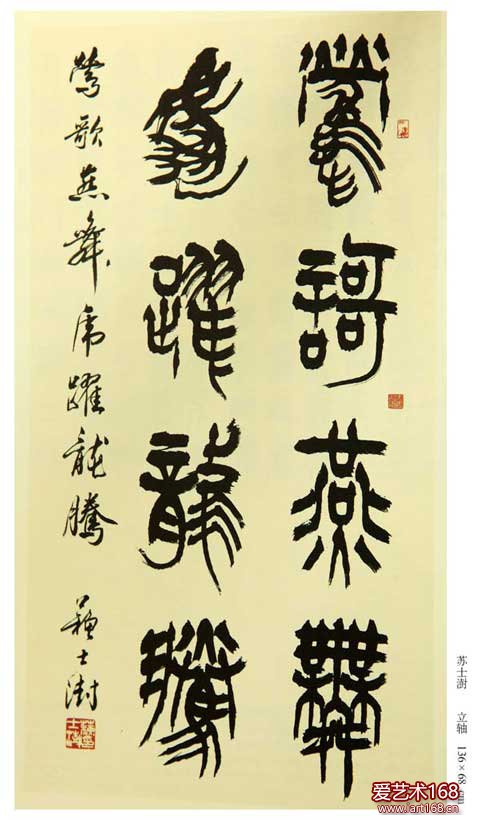 鶯訶燕舞
虎躍龍騰
鶯歌燕舞虎躍龍騰
蘇士澍
苏士澍 立轴 136×68 cm
爱艺术168
www.art168.cn